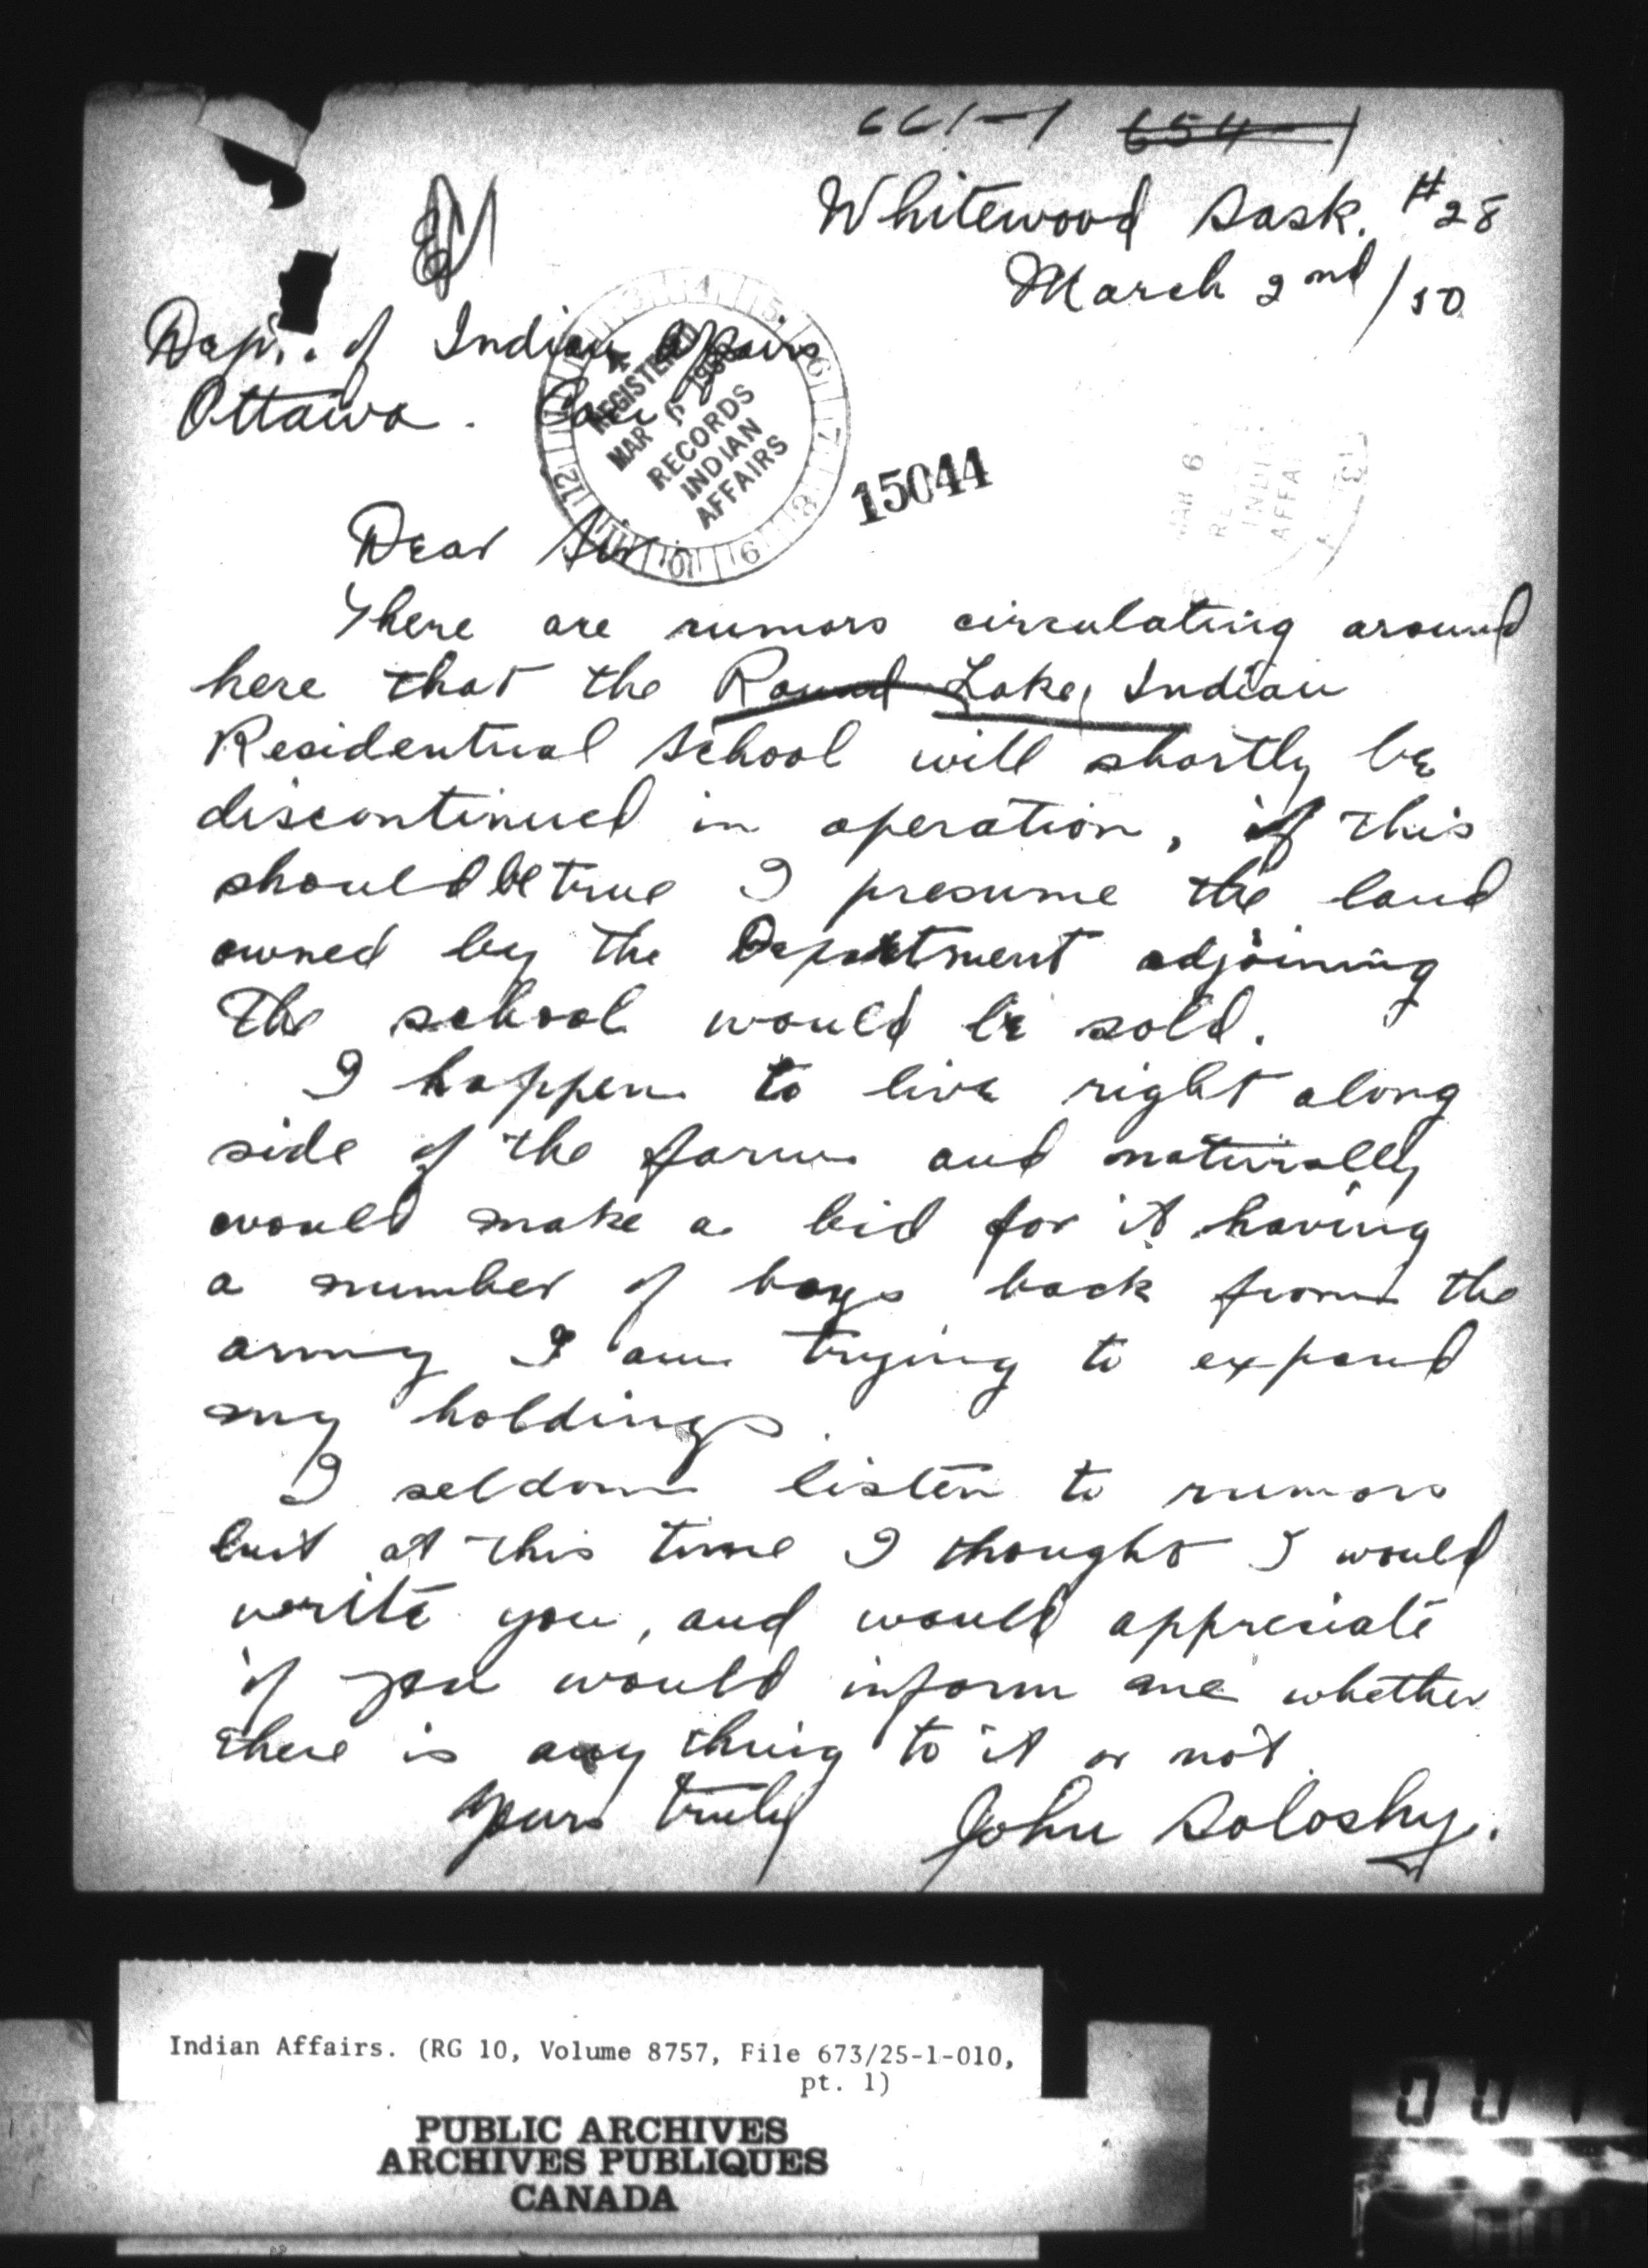 661-1 654-1
Whitewood Sask. #28
March 2nd/50
Dept. of Indian Affairs
Ottawa. Can.
REGISTERED
MAR 6 1950
RECORDS
INDIAN
AFFAIRS
15044
MAR 6
Dear Sir:
There are rumors circulating around
here that the Round Lake, Indian
Residentual School will shortly be
discontinued in operation, if this
should be true I presume the land
owned by the Department adjoining
the school would be sold.
I happen to live right along
side of the farm and naturally
would make a bid for it having
a number of boys back from the
army I am trying to expand
my holdings.
I seldom listen to rumors
but at this time I thought I would
write you, and would appreciate
if you would inform me whether
there is any thing to it or not.
Yours truly John Soloshy.
Indian Affairs. (RG 10, Volume 8757, File 673/25-1-010,
pt. 1)
PUBLIC ARCHIVES
ARCHIVES PUBLIQUES
CANADA
001